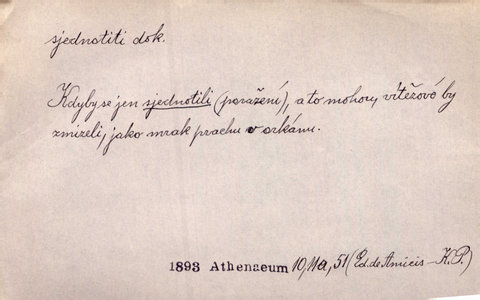 sjednotiti dok.
Kdyby se jen sjednotili (poražení), a to mohou, vítězové by
zmizeli, jako mrak prachu v orkánu.
1893 Athenaeum 10, 11a, 51 (Ed. de Amicis – K.P.)